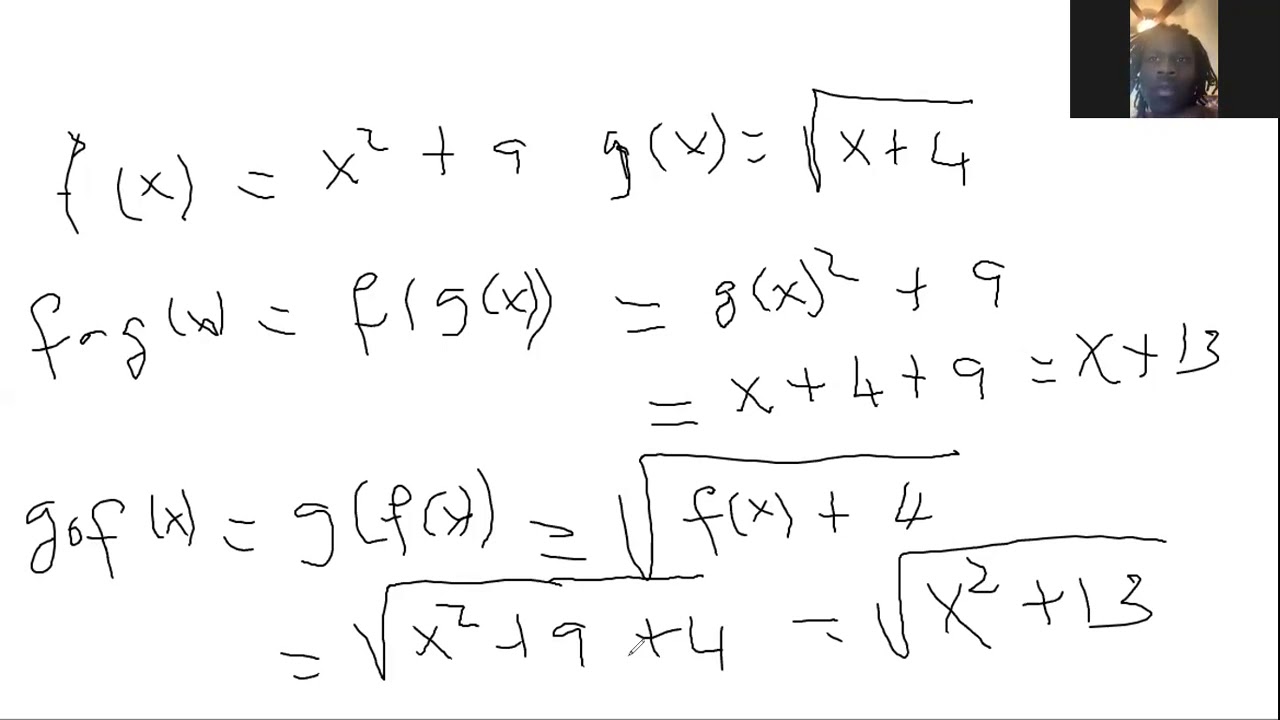 f(x) = x² + 9 g(x) = √(x + 4)
f∘g(x) = f(g(x)) = g(x)² + 9
= x + 4 + 9 = x + 13
g∘f(x) = g(f(x)) = √(f(x) + 4)
= √(x² + 9 + 4) = √(x² + 13)